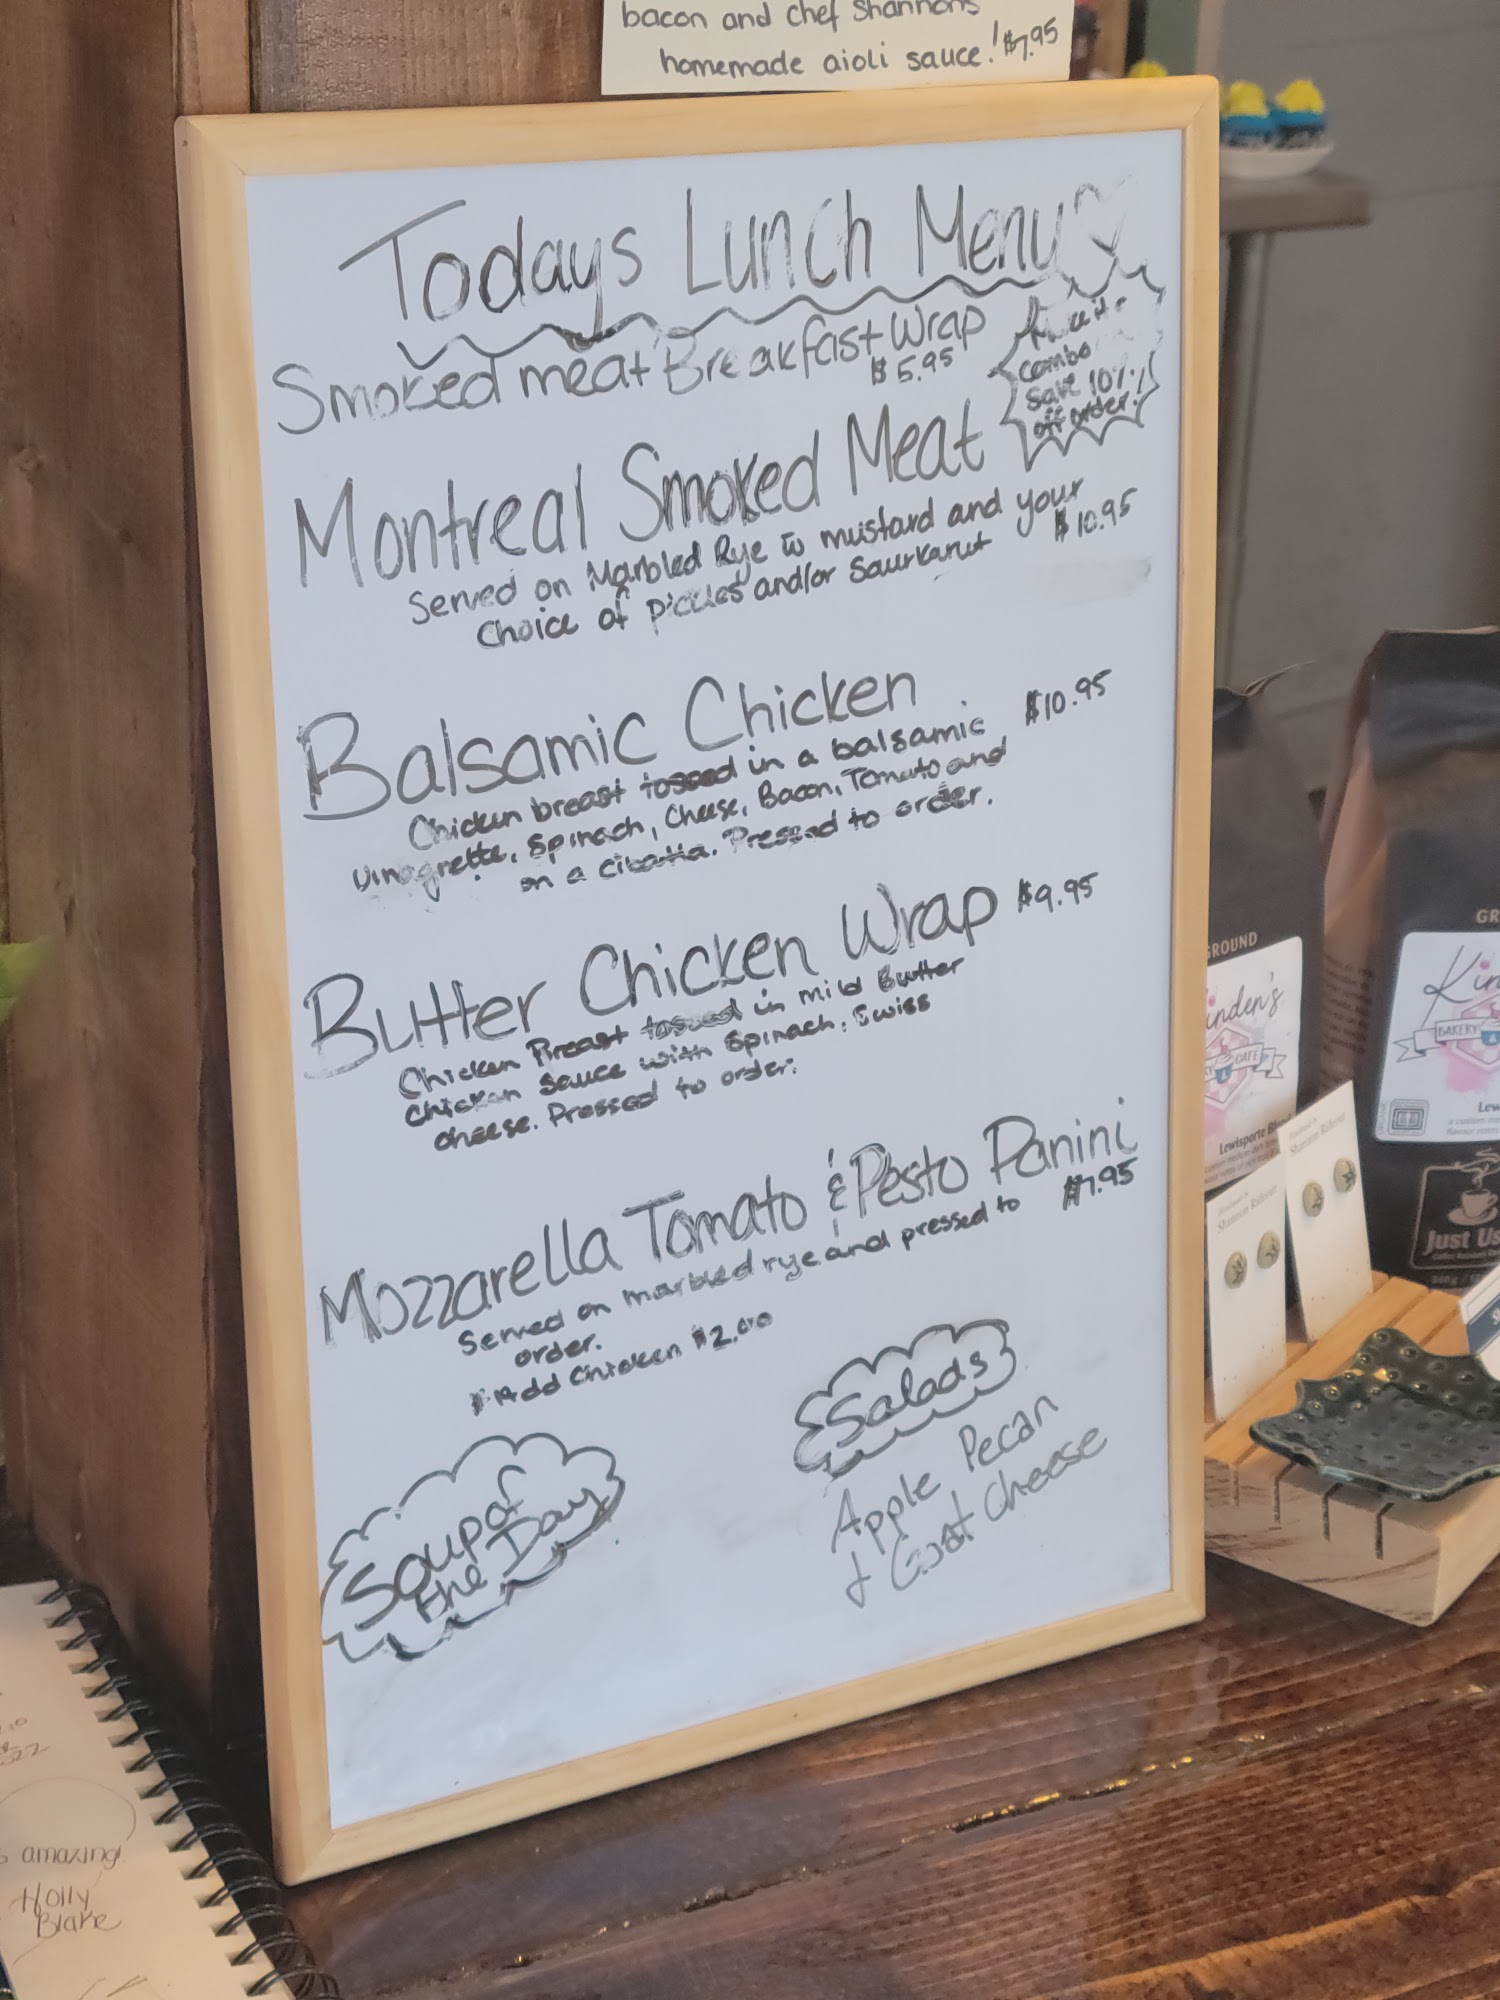 bacon and chef Shannons
homemade aioli sauce! $7.95
Todays Lunch Menu
Smoked meat Breakfast Wrap
$5.95
Make it a
combo
save 10%
off order!
Montreal Smoked Meat
Served on Marbled Rye w mustard and your
choice of pickles and/or Saurkraut
$10.95
Balsamic Chicken $10.95
Chicken breast tossed in a balsamic
vinagrette, Spinach, Cheese, Bacon, Tomato and
on a cibatta. Pressed to order.
Butter Chicken Wrap $9.95
Chicken Breast tossed in mild Butter
Chicken sauce with spinach, Swiss
cheese. Pressed to order.
Mozzarella Tomato & Pesto Panini
Served on marbled rye and pressed to $7.95
order.
Add Chicken $2.00
Soup of
the Day
Salads
Apple Pecan
& Goat Cheese
GROUND
inden's
CAFE
Lewisporte
Shannon Rideout
Shannon Rideout
GR
Kin
BAKERY &
Lew
Just Us
amazing!
Holly
Blake